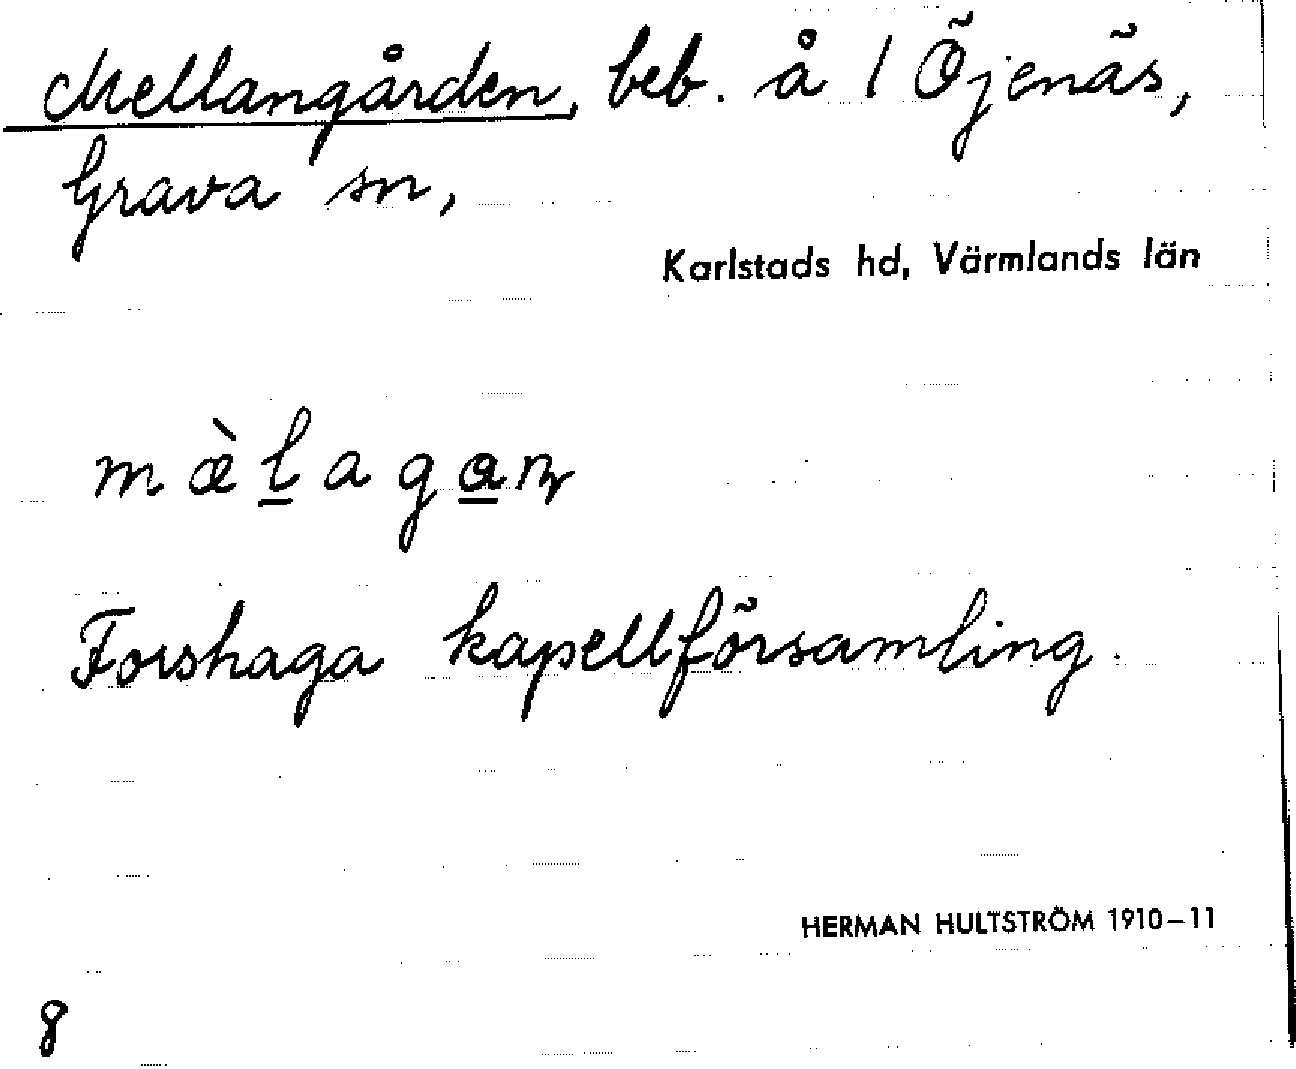 Mellangården, beb. å 1 Öjenäs,
Grava sn,
Karlstads hd, Värmlands län
mæ̀l̲aga̲ɳ
Forshaga kapellförsamling.
HERMAN HULTSTRÖM 1910–11
8